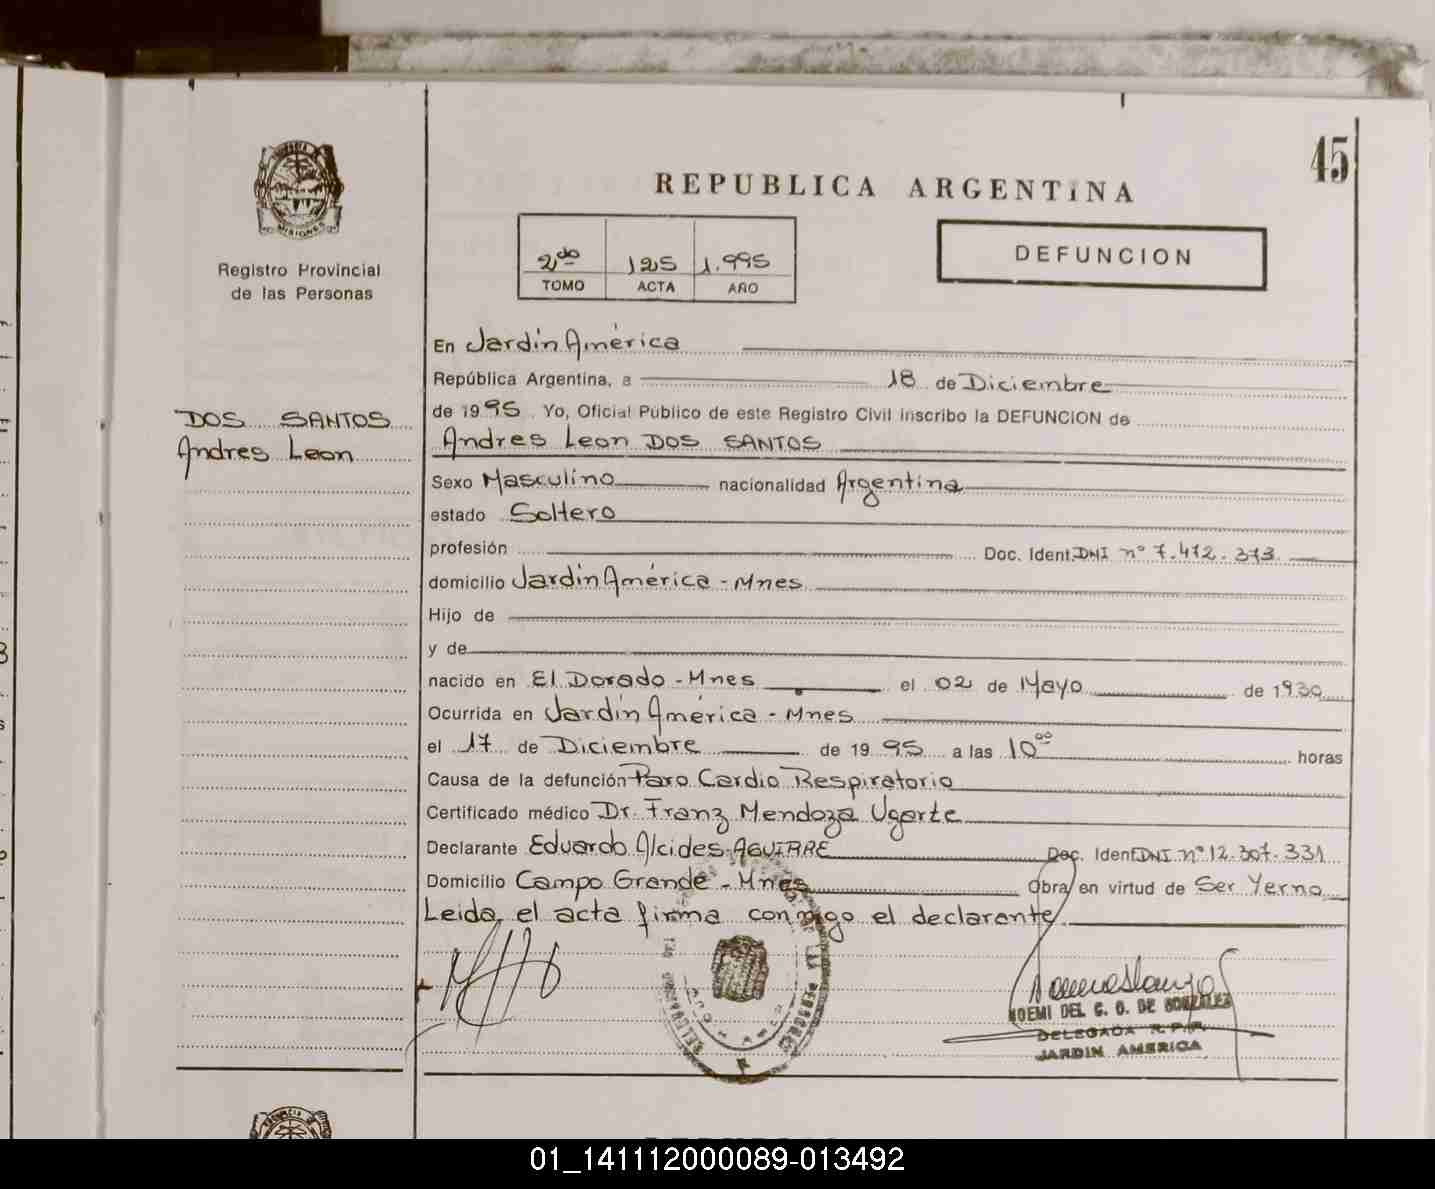 45
REPUBLICA ARGENTINA
PROVINCIA DE
MISIONES
Registro Provincial
de las Personas
2do 125 1.995
TOMO ACTA AÑO
DEFUNCION
DOS SANTOS
Andres Leon
En Jardín América
República Argentina, a 18 de Diciembre
de 1995. Yo, Oficial Público de este Registro Civil inscribo la DEFUNCION de
Andres Leon DOS SANTOS
Sexo Masculino nacionalidad Argentina
estado Soltero
profesión Doc. Ident. DNI nº 7.472.373
domicilio Jardín América - Mnes
Hijo de
y de
nacido en El Dorado - Mnes el 02 de Mayo de 1930
Ocurrida en Jardín América - Mnes
el 17 de Diciembre de 1995 a las 10 00 horas
Causa de la defunción Paro Cardio Respiratorio
Certificado médico Dr. Franz Mendoza Ugarte
Declarante Eduardo Alcides AGUIRRE Doc. Ident. DNI nº 12.307.331
Domicilio Campo Grande - Mnes Obra en virtud de Ser Yerno
Leida el acta firma conmigo el declarante
NOEMI DEL C. O. DE GONZALEZ
DELEGADA R.P.P.
JARDIN AMERICA
01_141112000089-013492